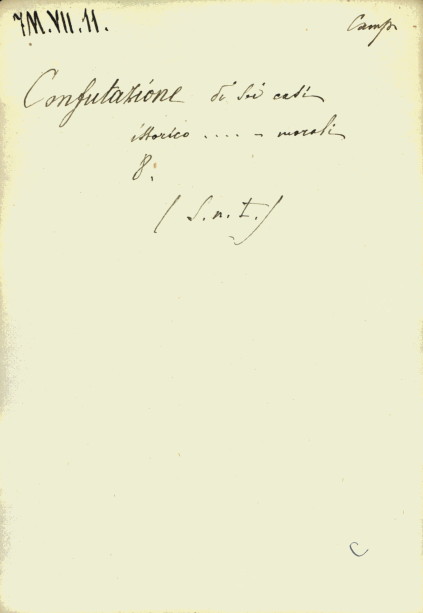 7M.VII.11.
Camp
Confutazione di sei casi
istorico .... - morali
8.
(S.n.t.)
C